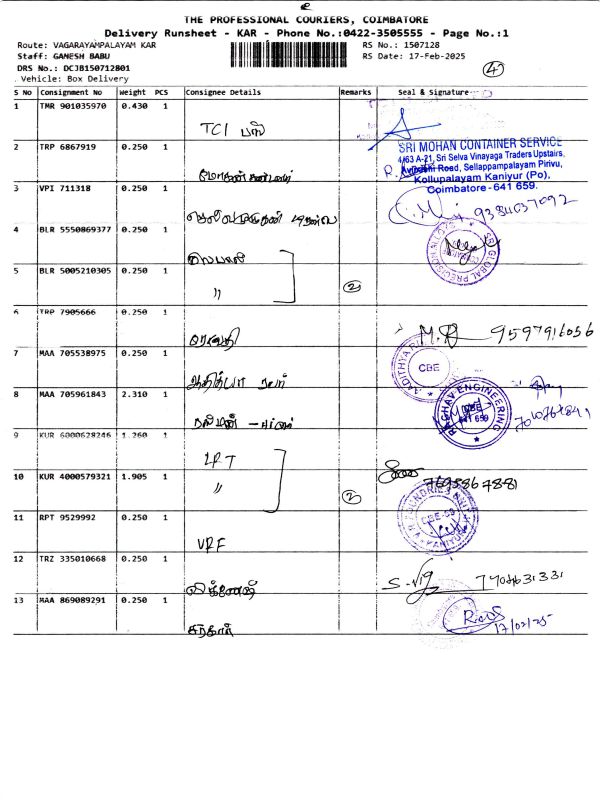 THE PROFESSIONAL COURIERS, COIMBATORE
Delivery Runsheet - KAR - Phone No.:0422-3505555 - Page No.:1
Route: VAGARAYAMPALAYAM KAR
RS No.: 1507128
Staff: GANESH BABU
RS Date: 17-Feb-2025
DRS No.: DCJB150712801
Vehicle: Box Delivery
4
S No Consignment No Weight PCS Consignee Details Remarks Seal & Signature
1 TMR 901035970 0.430 1
TCI பஸ்
2 TRP 6867919 0.250 1
SRI MOHAN CONTAINER SERVICE
4/63 A-21, Sri Selva Vinayaga Traders Upstairs,
Avinashi Road, Sellappampalayam Pirivu,
Kollupalayam Kaniyur (Po),
Coimbatore - 641 659.
3 VPI 711318 0.250 1
4 BLR 5550869377 0.250 1
SRI GLOBAL PRECISION ALLOYS
5 BLR 5005210305 0.250 1
"
2
6 TRP 7905666 0.250 1
ரேவதி
M.R 9597916056
7 MAA 705538975 0.250 1
ஆதித்யா
CBE
8 MAA 705961843 2.310 1
RAGHAV ENGINEERING
CBE
641 659
9 KUR 6000628246 1.260 1
LPT
10 KUR 4000579321 1.905 1
"
2
7695867881
11 RPT 9529992 0.250 1
VRF
12 TRZ 335010668 0.250 1
S. Vig 7708631331
13 MAA 869089291 0.250 1
17/02/25